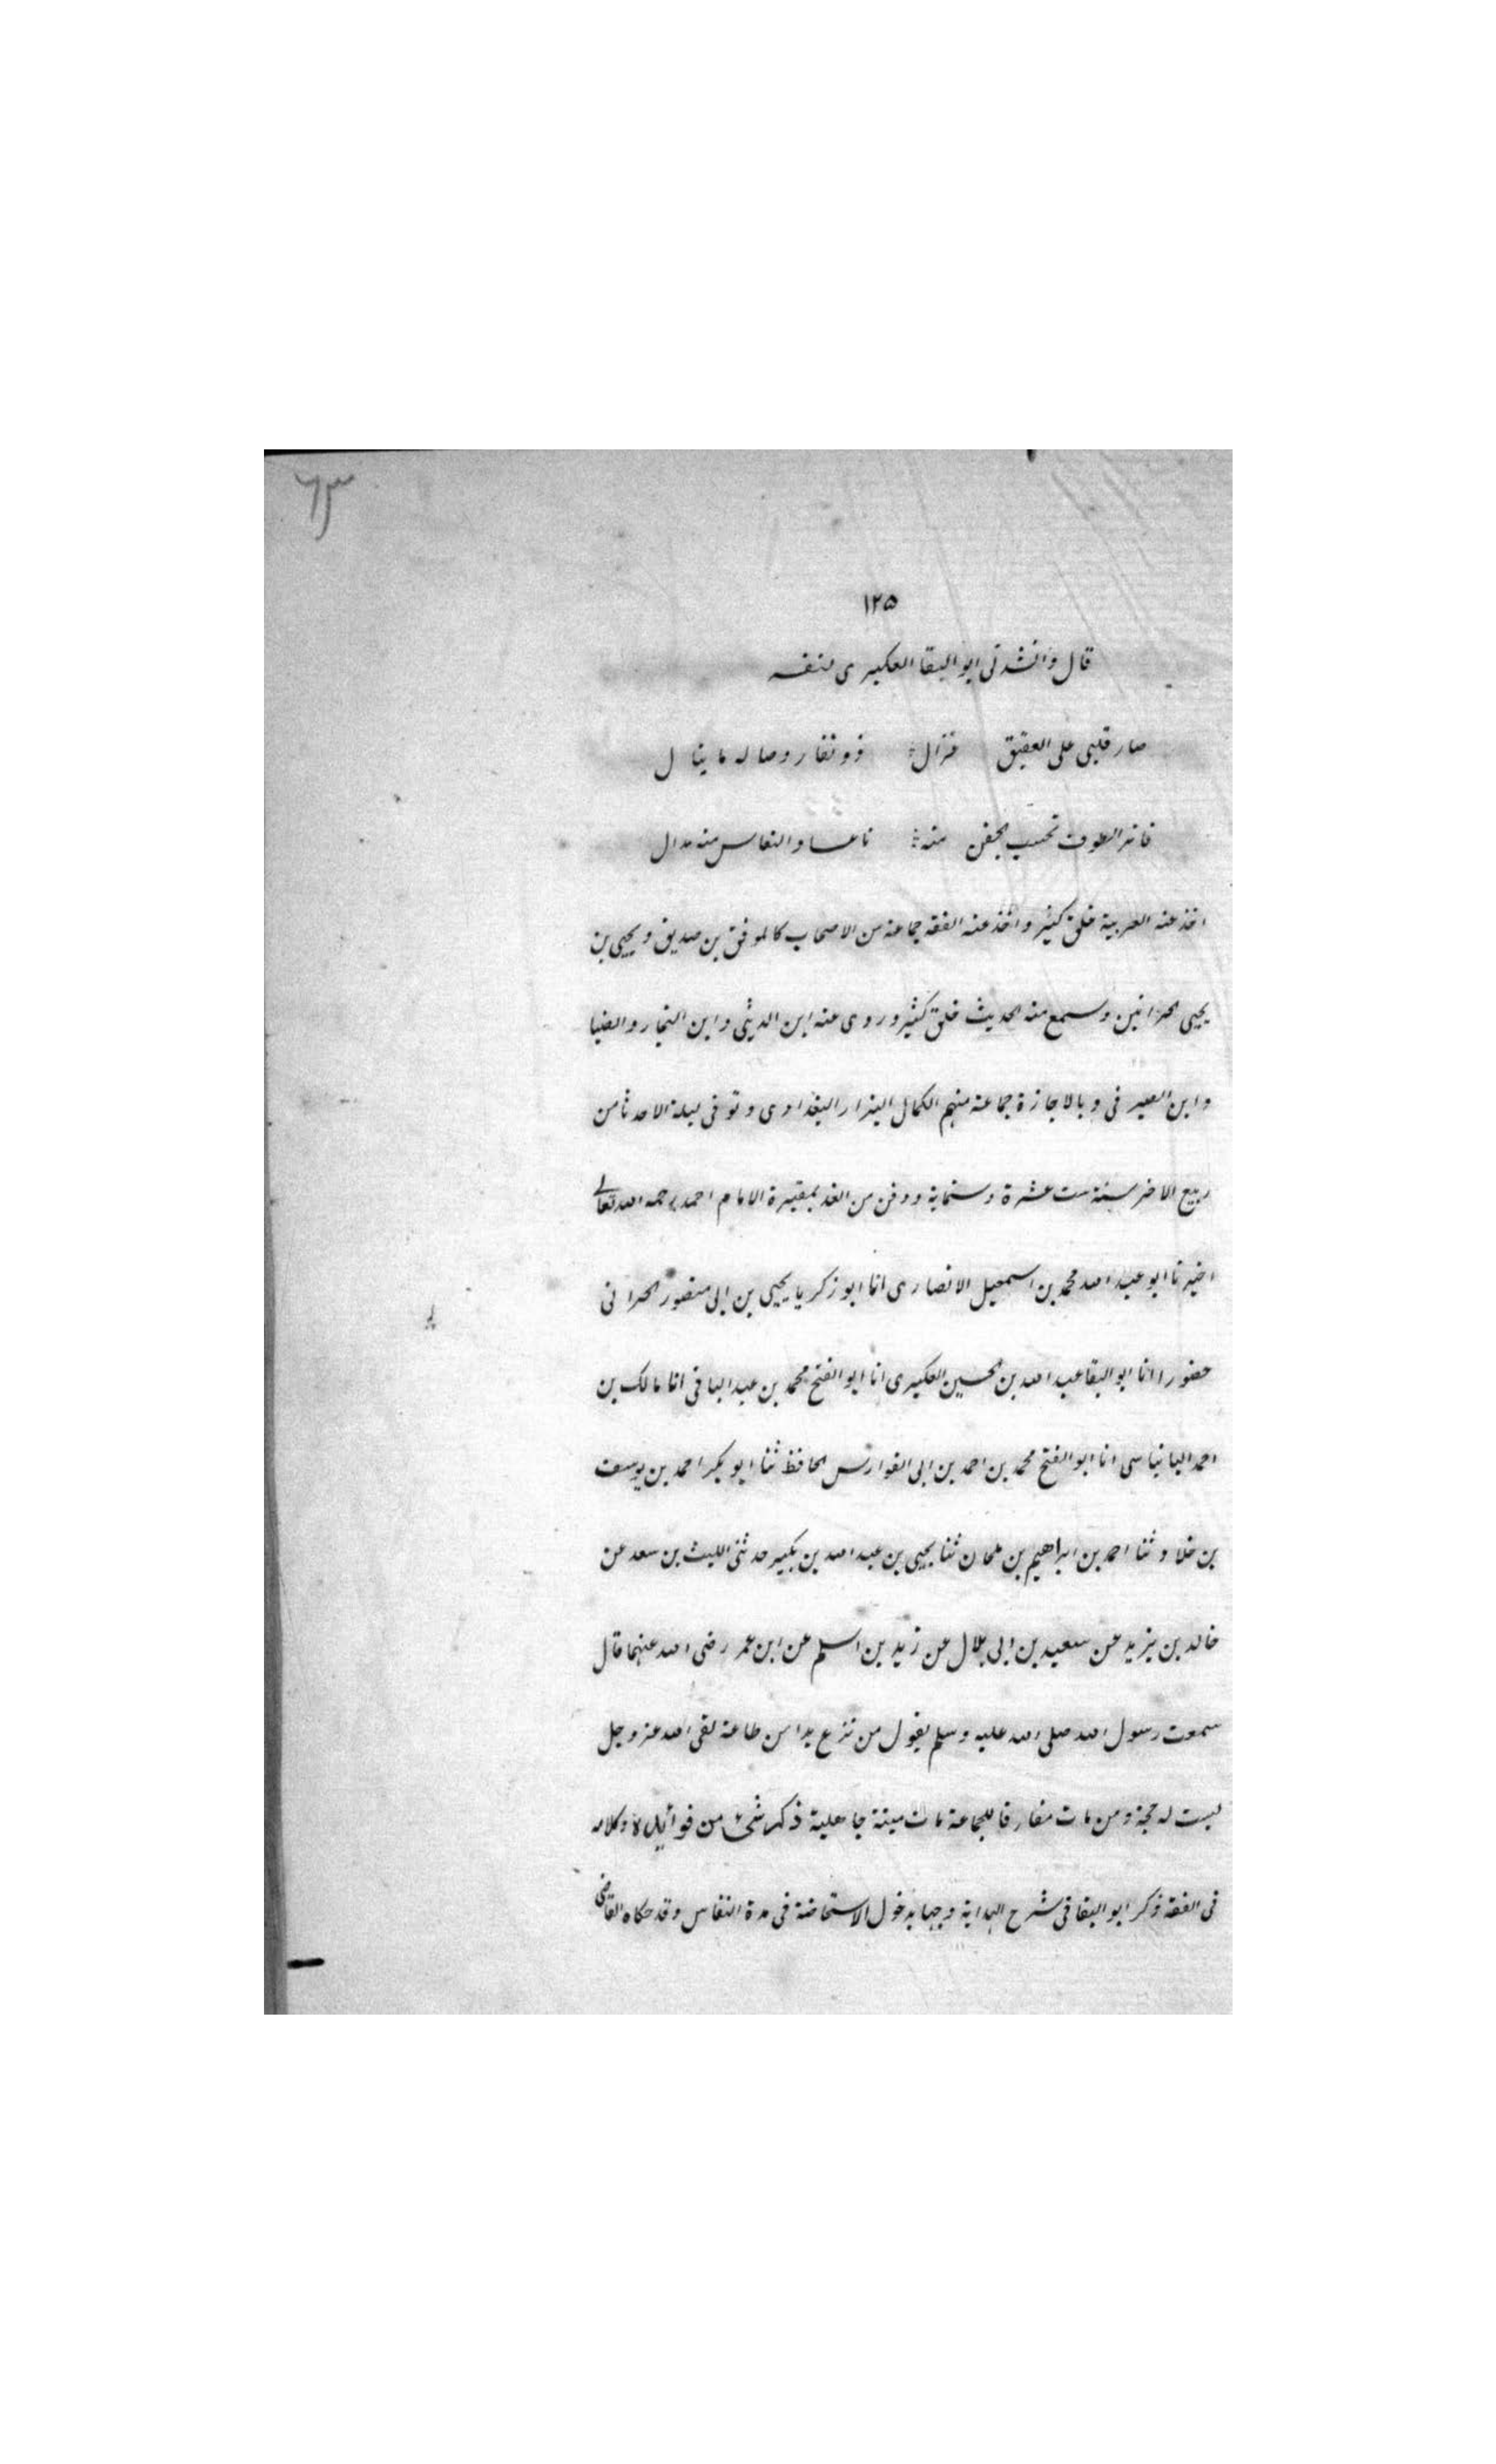 ٦٣
١٢٥
قال وانشدني ابو البقا العكبرى لنفسه
صار قلبى على العقيق غزال ذو نفار وصاله ما ينال
فاتر الطرف تحسب الجفن منه ناعسا والنعاس منه مدال
اخذ عنه العربية خلق كثير واخذ عنه الفقه جماعة من الاصحاب كالموفق بن صديق ويحيى بن
يحيى الحرانيين وسمع منه الحديث خلق كثير وروى عنه ابن الدبيثى وابن النجار والضيا
وابن الصيرفى وبالاجازة جماعة منهم الكمال البزار البغدادى وتوفى ليلة الاحد ثامن
ربيع الاخر سنة ست عشرة وستماية ودفن من الغد بمقبرة الامام احمد رحمه الله تعالى
اخبرنا ابو عبد الله محمد بن اسمعيل الانصارى انا ابو زكريا يحيى بن ابى منصور الحرانى
حضورا انا ابو البقا عبد الله بن الحسين العكبرى انا ابو الفتح محمد بن عبد الباقى انا مالك بن
احمد البانياسى انا ابو الفتح محمد بن احمد بن ابى الفوارس الحافظ ثنا ابو بكر احمد بن يوسف
بن خلاد ثنا احمد بن ابراهيم بن ملحان ثنا يحيى بن عبد الله بن بكير حدثنى الليث بن سعد عن
خالد بن يزيد عن سعيد بن ابى هلال عن زيد بن اسلم عن ابن عمر رضى الله عنهما قال
سمعت رسول الله صلى الله عليه وسلم يقول من نزع يدا من طاعة لقى الله عز وجل
ليست له حجة ومن مات مفارقا للجماعة مات ميتة جاهلية ذكر شىء من فوائده وكلامه
فى الفقه ذكر ابو البقا فى شرح الهداية وجها بدخول الاستحاضة فى مدة النفاس وقد حكاه القاضى